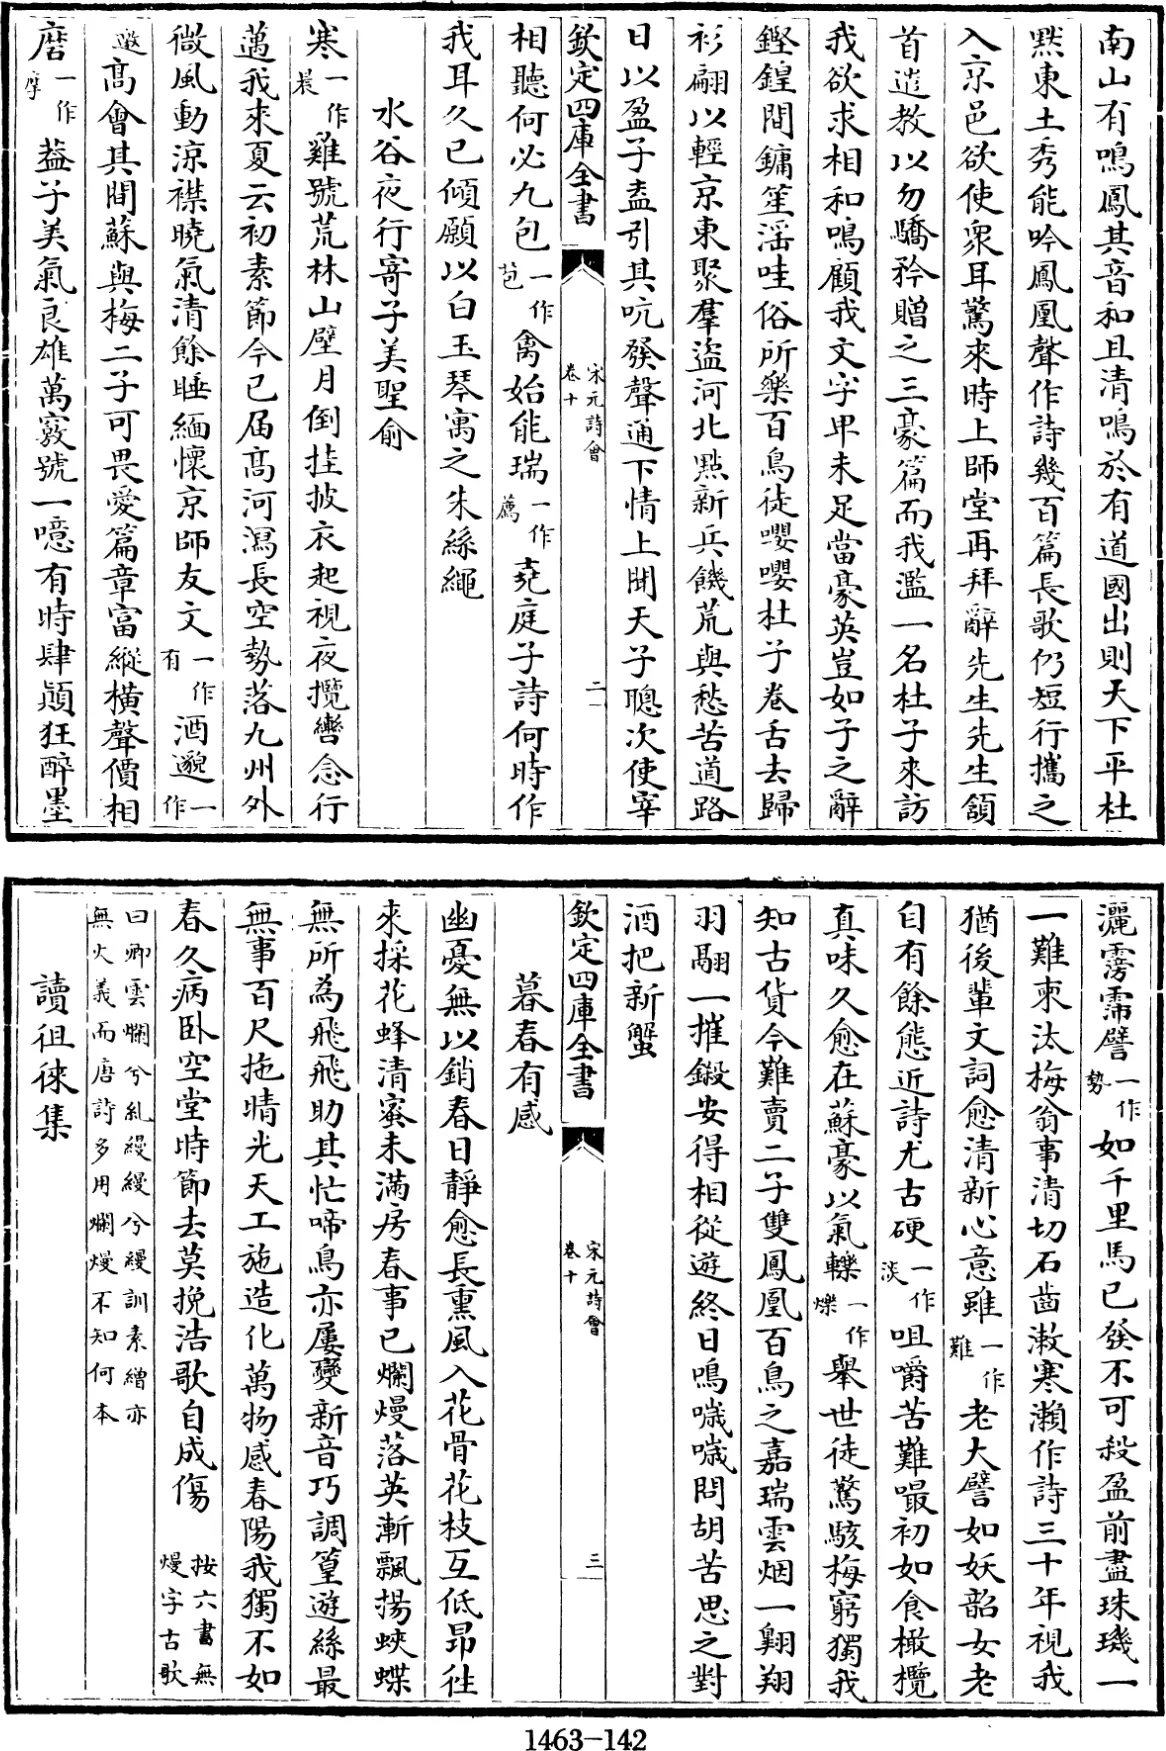 南山有鳴鳳其音和且清鳴於有道國出則天下平杜
黙東土秀能吟鳳凰聲作詩幾百篇長歌仍短行攜之
入京邑欲使衆耳驚來時上師堂再拜辭先生先生頷
首遣教以勿驕矜贈之三豪篇而我濫一名杜子來訪
我欲求相和鳴顧我文字卑未足當豪英豈如子之辭
鏗鍠間鏞笙淫哇俗所樂百鳥徒嚶嚶杜子卷舌去歸
衫翩以輕京東聚羣盜河北點新兵饑荒與愁苦道路
日以盈子盍引其吭發聲通下情上聞天子聰次使宰
欽定四庫全書 宋元詩會 卷十 二
相聽何必九包一作苞禽始能瑞一作薦堯庭子詩何時作
我耳久已傾願以白玉琴寓之朱絲繩
水谷夜行寄子美聖俞
寒一作晨雞號荒林山壁月倒挂披衣起視夜攬轡念行
邁我來夏云初素節今已届髙河瀉長空勢落九州外
微風動涼襟曉氣清餘睡緬懷京師友文一作有酒邈一作
邀髙會其間蘇與梅二子可畏愛篇章富縱横聲價相
磨一作摩葢子美氣良雄萬竅號一噫有時肆顛狂醉墨
灑霶霈譬一作勢如千里馬已發不可殺盈前盡珠璣一
一難柬汰梅翁事清切石齒漱寒瀨作詩三十年視我
猶後輩文詞愈清新心意雖一作難老大譬如妖韶女老
自有餘態近詩尤古硬一作淡咀嚼苦難嘬初如食橄欖
真味久愈在蘇豪以氣轢一作爍舉世徒驚駭梅窮獨我
知古貨今難賣二子雙鳳凰百鳥之嘉瑞雲烟一翺翔
羽翮一摧鎩安得相從遊終日鳴噦噦問胡苦思之對
酒把新蟹
欽定四庫全書 宋元詩會 卷十 三
暮春有感
幽憂無以銷春日靜愈長熏風入花骨花枝互低昂徃
來採花蜂清蜜未滿房春事已爛熳落英漸飄揚蛺蝶
無所為飛飛助其忙啼鳥亦屢變新音巧調篁遊絲最
無事百尺拖晴光天工施造化萬物感春陽我獨不如
春久病卧空堂時節去莫挽浩歌自成傷 按六書無熳字古歌
曰卿雲爛兮糺縵縵兮縵訓素繒亦無火義而唐詩多用爛熳不知何本
讀徂徠集
1463-142